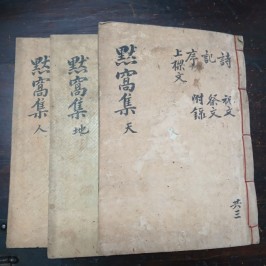 詩 祝文
記 祭文
序 附錄
上樑文
默窩集 天
共三
默窩集 地
默窩集 人